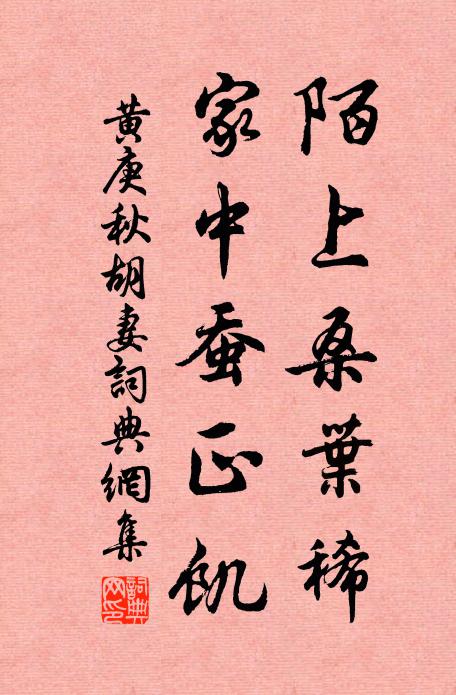 陌上桑葉稀
家中蚕正飢
黄庚秋胡妻詞典網集
詞典网印